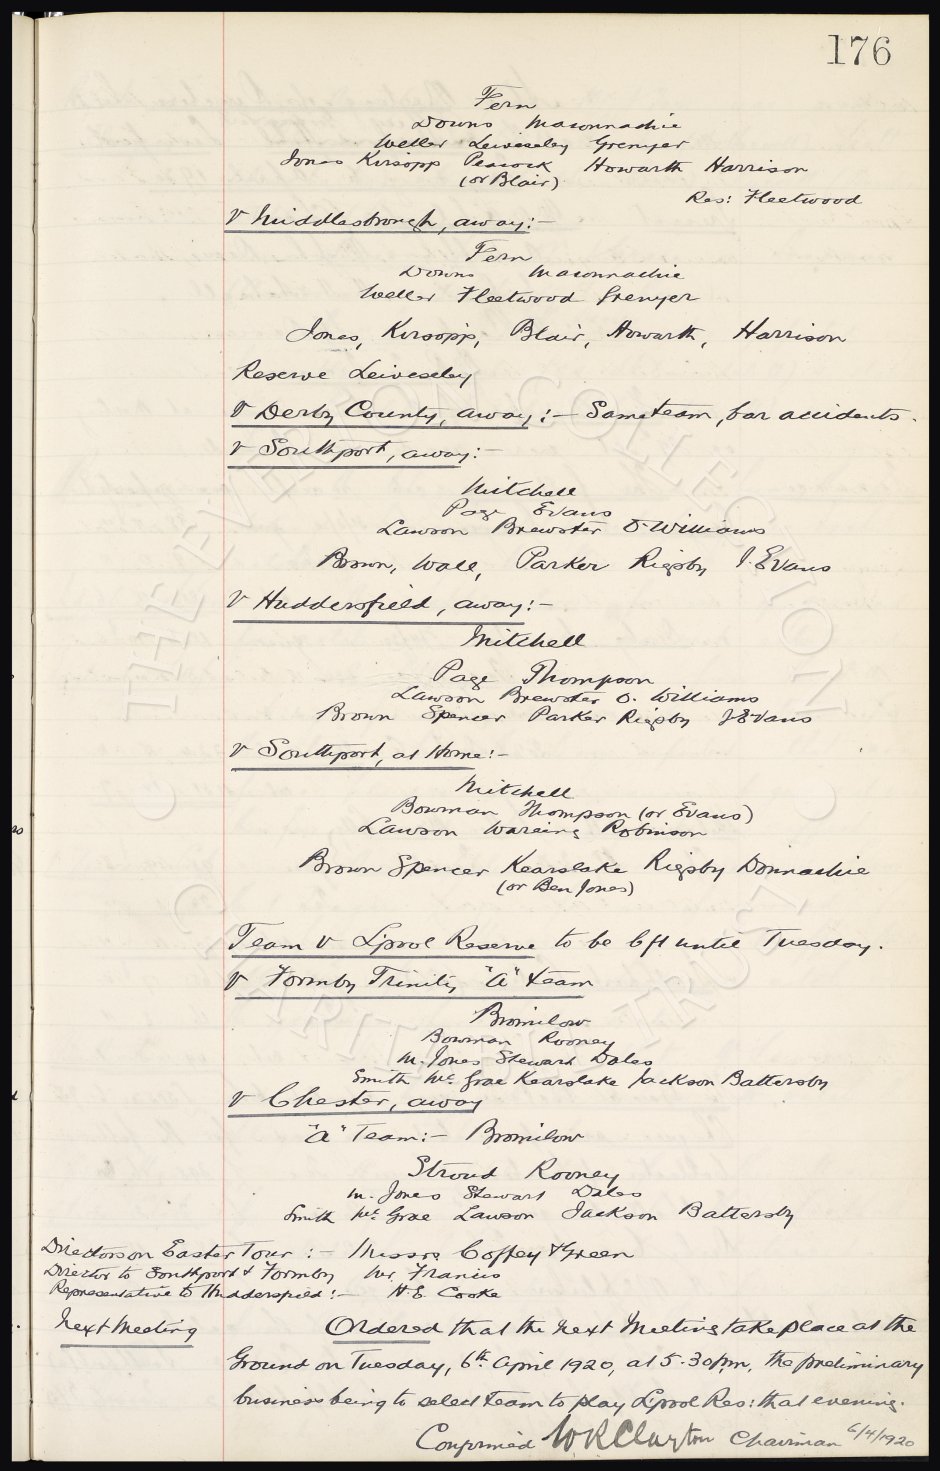 176
Fern
Downs Maconnachie
Weller Leivesley Grenyer
Jones Kirsopp Peacock Howarth Harrison
(or Blair)
Res: Fleetwood
v Middlesbrough, away:-
Fern
Downs Maconnachie
Weller Fleetwood Grenyer
Jones, Kirsopp, Blair, Howarth, Harrison
Reserve Leivesley
v Derby County, away:- Same team, bar accidents.
v Southport, away:-
Mitchell
Page Evans
Lawson Brewster O. Williams
Brown, Wall, Parker Rigsby J. Evans
v Huddersfield, away:-
Mitchell
Page Thompson
Lawson Brewster O. Williams
Brown Spencer Parker Rigsby J Evans
v Southport, at Home:-
Mitchell
Bowman Thompson (or Evans)
Lawson Wareing Robinson
Brown Spencer Kearslake Rigsby Donnachie
(or Ben Jones)
Team v L'pool Reserve to be left until Tuesday.
v Formby Trinity "A" team
Bromilow
Bowman Rooney
M. Jones Stewart Dales
Smith McGrae Kearslake Jackson Battersby
v Chester, away
"A" Team:- Bromilow
Stroud Rooney
M. Jones Stewart Dales
Smith McGrae Lawson Jackson Battersby
Directors on Easter Tour:- Messrs Coffey & Green
Director to Southport & Formby Mr. Francis
Representative to Huddersfield:- H E. Cooke
Next Meeting Ordered that the next Meeting take place at the
Ground on Tuesday, 6th April 1920, at 5.30 p.m, the preliminary
business being to select team to play L'pool Res: that evening.
Confirmed W R Clayton Chairman 6/4/1920
THE EVERTON COLLECTION CHARITABLE TRUST